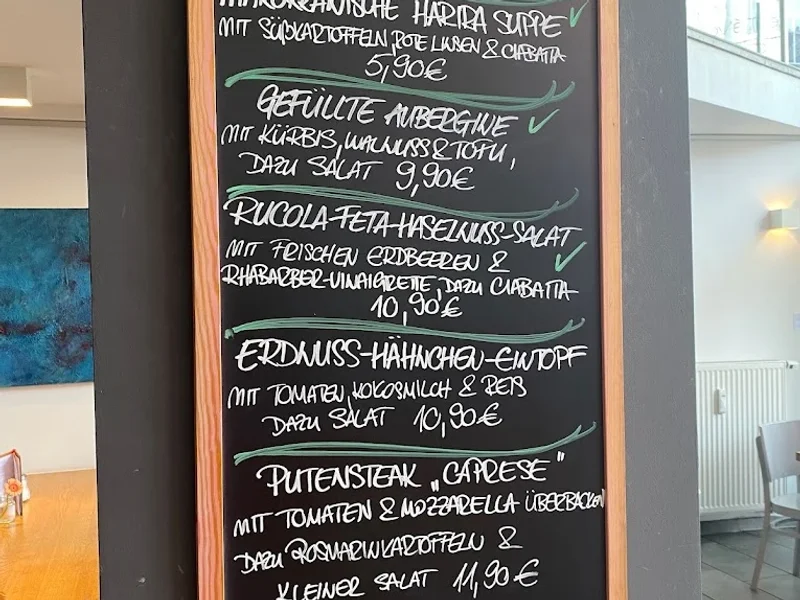 MAROKKANISCHE HARIRA SUPPE
MIT SÜßKARTOFFELN, ROTE LINSEN & CIABATTA
5,90€
GEFÜLLTE AUBERGINE
MIT KÜRBIS, WALNUSS & TOFU,
DAZU SALAT 9,90€
RUCOLA-FETA-HASELNUSS-SALAT
MIT FRISCHEN ERDBEEREN &
RHABARBER-VINAIGRETTE, DAZU CIABATTA
10,90€
ERDNUSS-HÄHNCHEN-EINTOPF
MIT TOMATEN, KOKOSMILCH & REIS
DAZU SALAT 10,90€
PUTENSTEAK „CAPRESE"
MIT TOMATEN & MOZZARELLA ÜBERBACKEN
DAZU ROSMARINKARTOFFELN &
KLEINER SALAT 11,90€